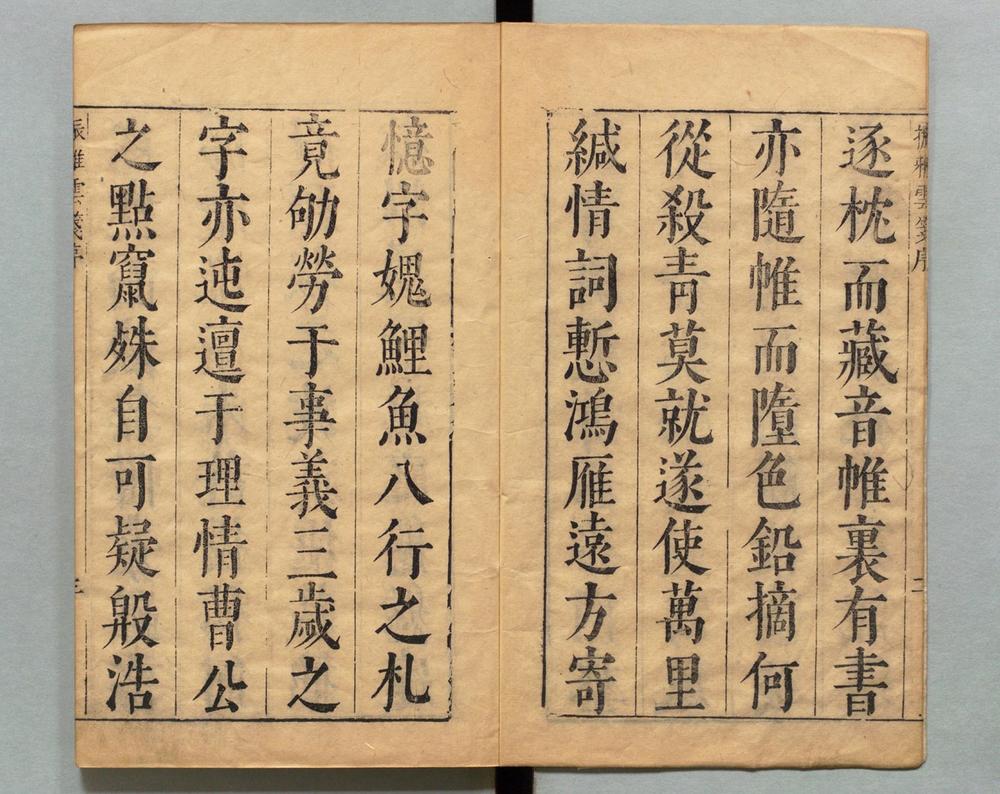 逐枕而藏音帷裏有書
亦隨帷而墮色鉛摘何
從殺青莫就遂使萬里
緘情詞慙鴻雁遠方寄
憶字媿鯉魚八行之札
竟劬勞于事義三歲之
字亦迍邅于理情曹公
之點竄殊自可疑殷浩